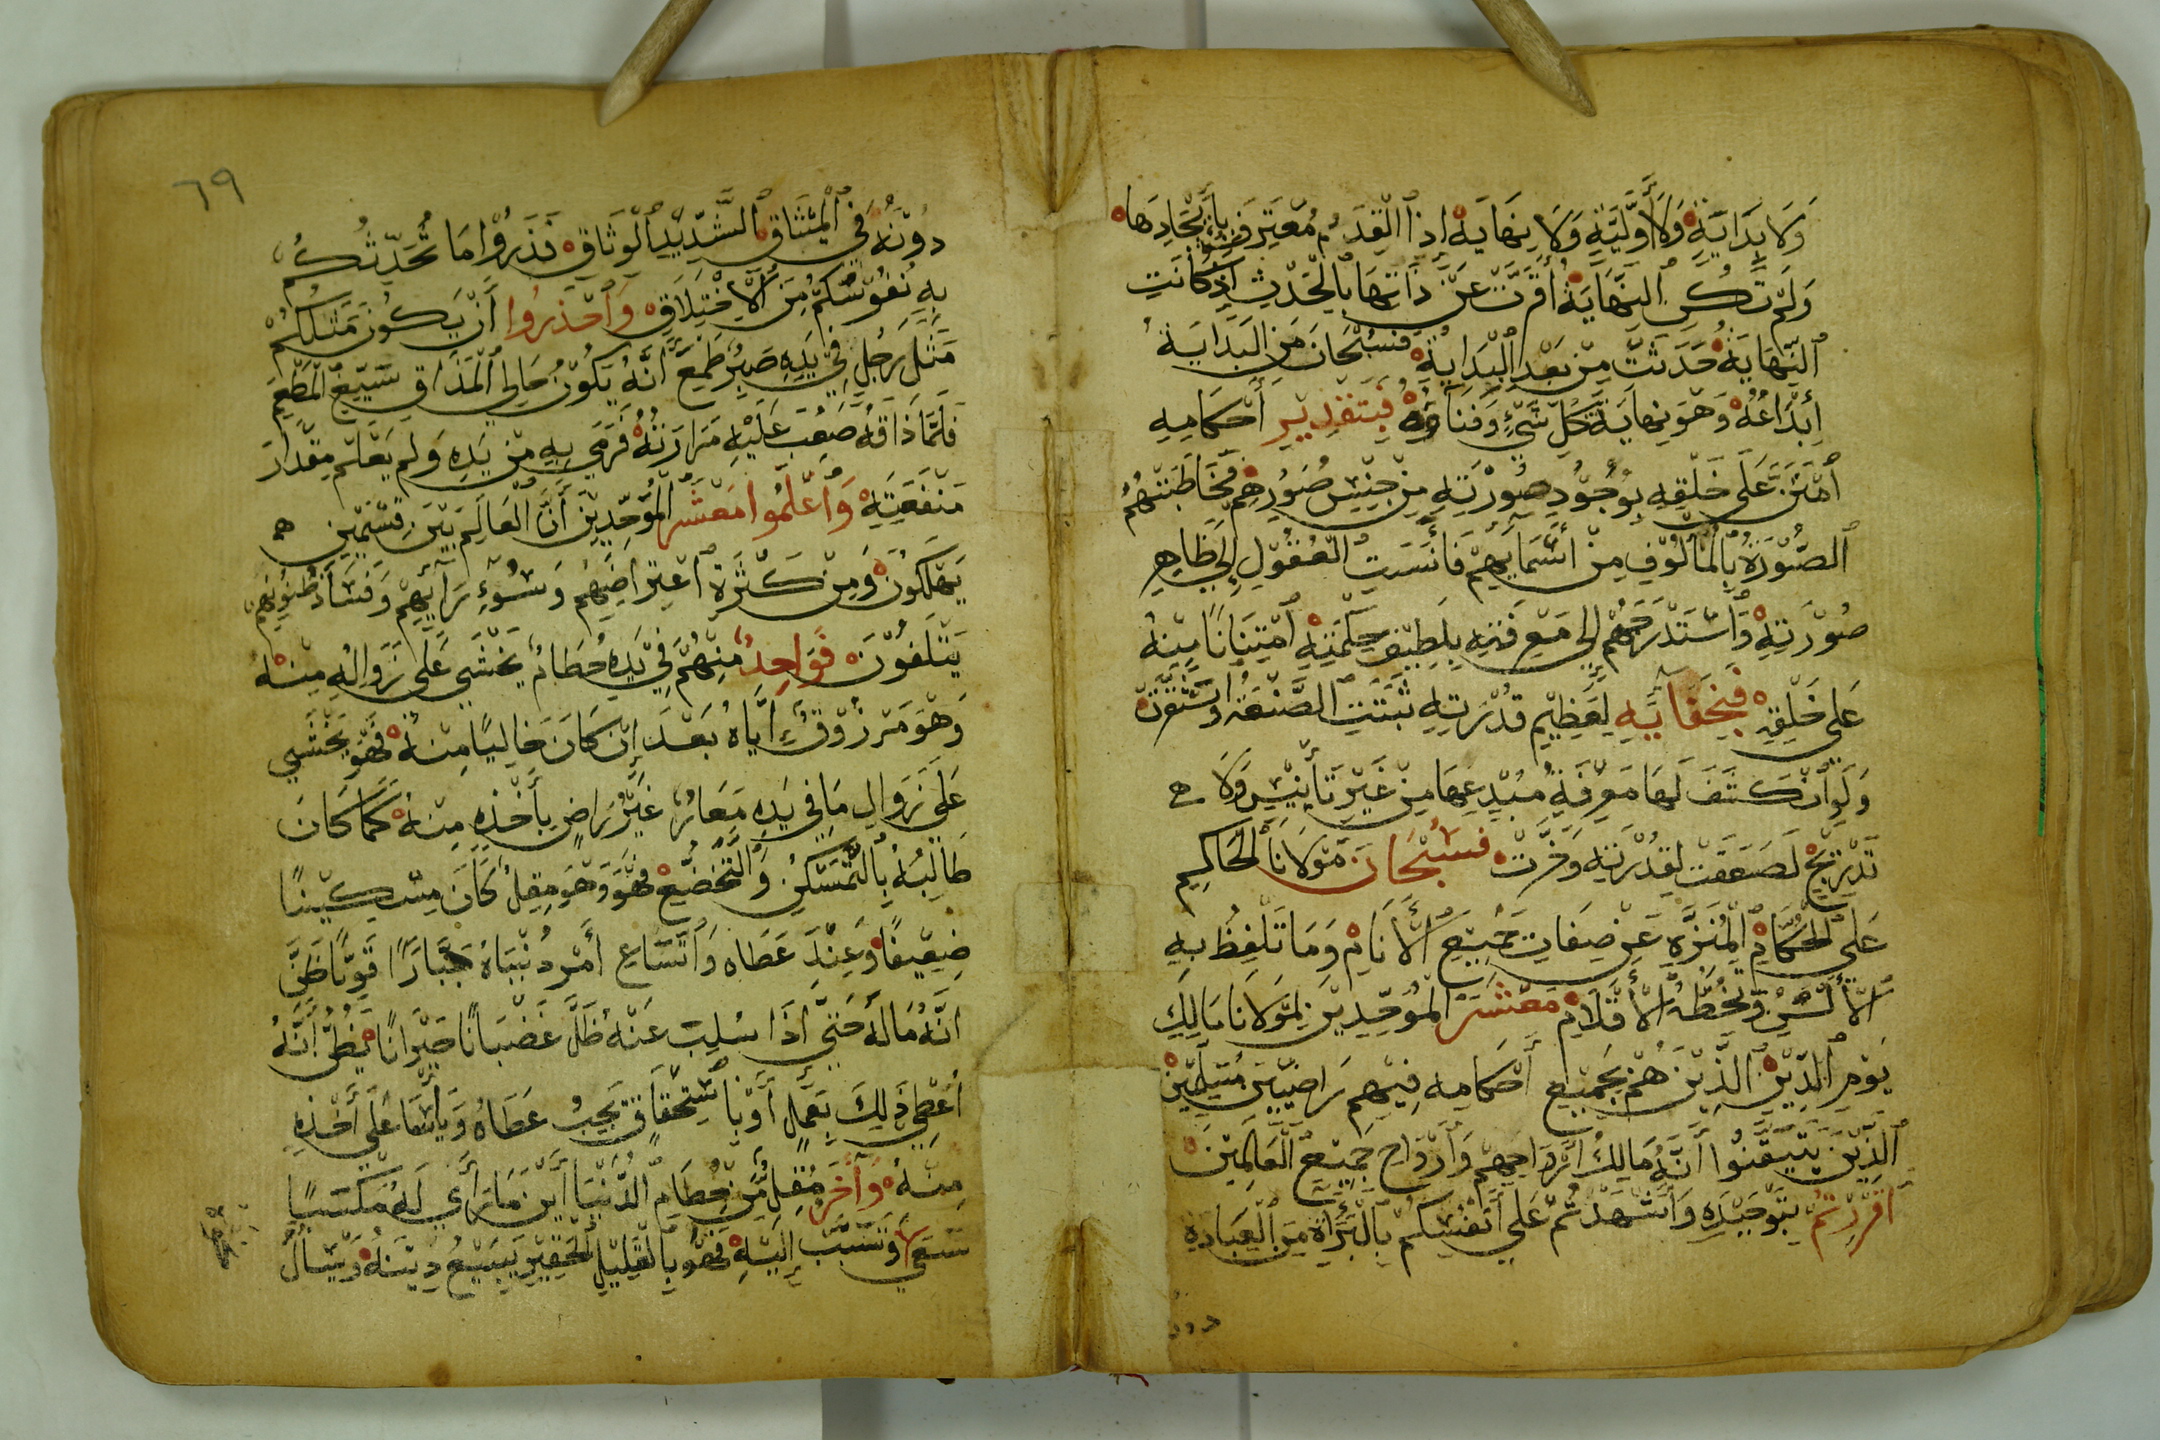 وَلَا بِدَايَةٍ وَلَا أَوَّلِيَّةٍ وَلَا نِهَايَةْ إِذِ ٱلْقِدَمُ مُعْتَرِفٌ بِإِيْجَادِهَا
وَلَمْ تَكُنِ ٱلنِّهَايَةُ أَقَرَّتْ عَنْ ذَاتِهَا بِالْحَدَثِ إِذْ كَانَتِ
ٱلنِّهَايَةُ حَدَثَتْ مِنْ بَعْدِ الْبِدَايَةْ فَسُبْحَانَ مَنِ الْبِدَايَةُ
إِبْدَاعُهُ وَهْوَ نِهَايَةُ كُلِّ شَيْءٍ وَفَنَاؤُهُ فَبِتَقْدِيْرِ أَحْكَامِهِ
ٱمْتَنَّ عَلَى خَلْقِهِ بِوُجُوْدِ صُوْرَتِهِ مِنْ جِنْسِ صُوَرِهِمْ فَخَاطَبَتْهُمُ
ٱلصُّوْرَةُ بِالْمَأْلُوْفِ مِنْ أَسْمَائِهِمْ فَأَنِسَتِ الْعُقُوْلُ إِلَى ظَاهِرِ
صُوْرَتِهِ وَاسْتَدْرَجَهُمْ إِلَى مَعْرِفَتِهِ بِلَطِيْفِ حِكْمَتِهِ ٱمْتِنَانًا مِنْهُ
عَلَى خَلْقِهِ فَبِخَفَائِهِ لِعَظِيْمِ قُدْرَتِهِ ثَبَتَتِ الصَّنْعَةُ وَاسْتَقَرَّتْ
وَلَوِ ٱنْكَشَفَ لَهَا مَعْرِفَةُ مُبْدِعِهَا مِنْ غَيْرِ تَأْنِيْسٍ وَلَا
تَدْرِيْجٍ لَصَعِقَتْ لِقُدْرَتِهِ وَخَرَّتْ فَسُبْحَانَ مَوْلَانَا الْحَاكِمِ
عَلَى الْحُكَّامِ الْمُنَزَّهِ عَنْ صِفَاتِ جَمِيْعِ ٱلْأَنَامِ وَمَا تَلْفِظُ بِهِ
ٱلْأَلْسُنُ وَتَخُطُّهُ ٱلْأَقْلَامُ مَعْشَرَ الْمُوَحِّدِيْنَ لِمَوْلَانَا مَالِكِ
يَوْمِ ٱلدِّيْنِ ٱلَّذِيْنَ هُمْ بِجَمِيْعِ أَحْكَامِهِ فِيْهِمْ رَاضِيْيَنَ مُسَلِّمِيْنَ
ٱلَّذِيْنَ يَتَيَقَّنُوا أَنَّهُ مَالِكُ أَرْوَاحِهِمْ وَأَرْوَاحِ جَمِيْعِ ٱلْعَالَمِيْنَ
أَقْرَرْتُمْ بِتَوْحِيْدِهِ وَأَشْهَدْتُمْ عَلَى أَنْفُسِكُمْ بِالْبَرَاةِ مِنَ الْعِبَادَةِ
دونه
٦٩
دُوْنَهُ فِي ٱلْمِيْثَاقِ ٱلشَّدِيْدِ ٱلْوَثَاقِ فَذَرُوْا مَا تُحَدِّثُكُمْ
بِهِ نُفُوْسُكُمْ مِنَ ٱلْاِخْتِلَاقِ وَٱحْذَرُوا أَنْ يَكُوْنَ مَثَلُكُمْ
مَثَلَ رَجُلٍ فِي يَدِهِ صَبِرٌ طَمِعَ أَنَّهُ يَكُوْنُ حَالِيَ ٱلْمَذَاقِ سَيِّغَ الْمَطْعَمِ
فَلَمَّا ذَاقَهُ صَعُبَ عَلَيْهِ مَرَارَتُهُ فَرَمَى بِهِ مِنْ يَدِهِ وَلَمْ يَعْلَمْ مِقْدَارَ
مَنْفَعَتِهِ وَاعْلَمُوا مَعْشَرَ الْمُوَحِّدِيْنَ أَنَّ الْعَالَمَ بَيْنَ قِسْمَيْنِ هم
يَهْلَكُوْنَ وَمِنْ كَثْرَةِ ٱعْتِرَاضِهِمْ وَسُوْءِ رَايِهِمْ وَفَسَادِ ظُنُوْنِهِمْ
يَتْلَفُوْنَ فَوَاحِدٌ مِنْهُمْ فِي يَدِهِ حُطَامٌ يَخْشَى عَلَى زَوَالِهِ مِنْهُ
وَهْوَ مَرْزُوْقٌ إِيَّاهُ بَعْدَ إِنْ كَانَ خَالِيًا مِنْهُ فَهْوَ يَخْشَى
عَلَى زَوَالِ مَا فِي يَدِهِ مَعَارٌ غَيْرُ رَاضٍ بِأَخْذِهِ مِنْهُ كَمَا كَانَ
طَالِبُهُ بِالتَّمَسْكُنِ وَالتَّخَضُّعِ فَهْوَ وَهْوَ مُقِلٌّ كَانَ مِسْكِيْنًا
ضَعِيْفًا وَعِنْدَ عَطَاهُ وَٱتِّسَاعِ أَمْرِ دُنْيَاهُ جَبَّارًا قَوِيًّا ظَنَّ
أَنَّهُ مَالَهُ حَتَّى إِذَا سُلِبَ عَنْهُ ظَلَّ غَضْبَانًا حَيْرَانًا يَظُنُّ أَنَّهُ
أُعْطِيَ ذٰلِكَ بِعَمَلٍ أَوْ بِاسْتِحْقَاقٍ يَجِبُ عَطَاهُ وَيَأْسَفَا عَلَى أَخْذِهِ
مِنْهُ وَآخَرُ مُقِلٌّ مِنْ حُطَامِ الدُّنْيَا أَيْنَ مَا رَأَى لَهُ مَكْسَبًا
سَعَى وَتَسَبَّبَ إِلَيْهِ فَهُوَ بِالْقَلِيْلِ الْحَقِيْرِ يَبِيْعُ دِيْنَهُ وَيَسْأَلُ